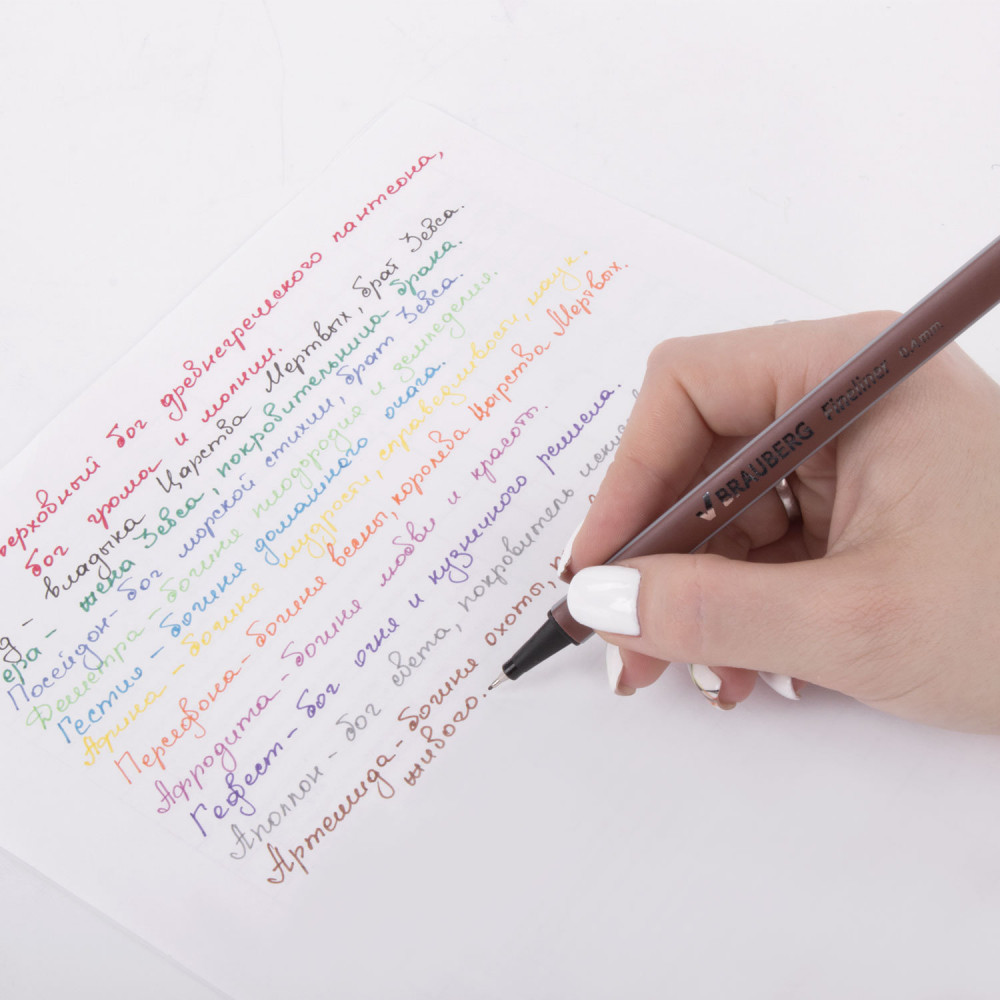 верховный бог древнегреческого пантеона,
бог грома и молнии.
владыка Царства Мертвых, брат Зевса.
жена Зевса, покровительница брака.
Посейдон - бог морской стихии, брат Зевса.
Деметра - богиня плодородия и земледелия.
Гестия - богиня домашнего очага.
Афина - богиня мудрости, справедливости, наук.
Персефона - богиня весны, королева Царства Мертвых.
Афродита - богиня любви и красоты.
Гефест - бог огня и кузнечного ремесла.
Аполлон - бог света, покровитель искус
Артемида - богиня охоты,
живого
BRAUBERG Fineliner 0.4 mm